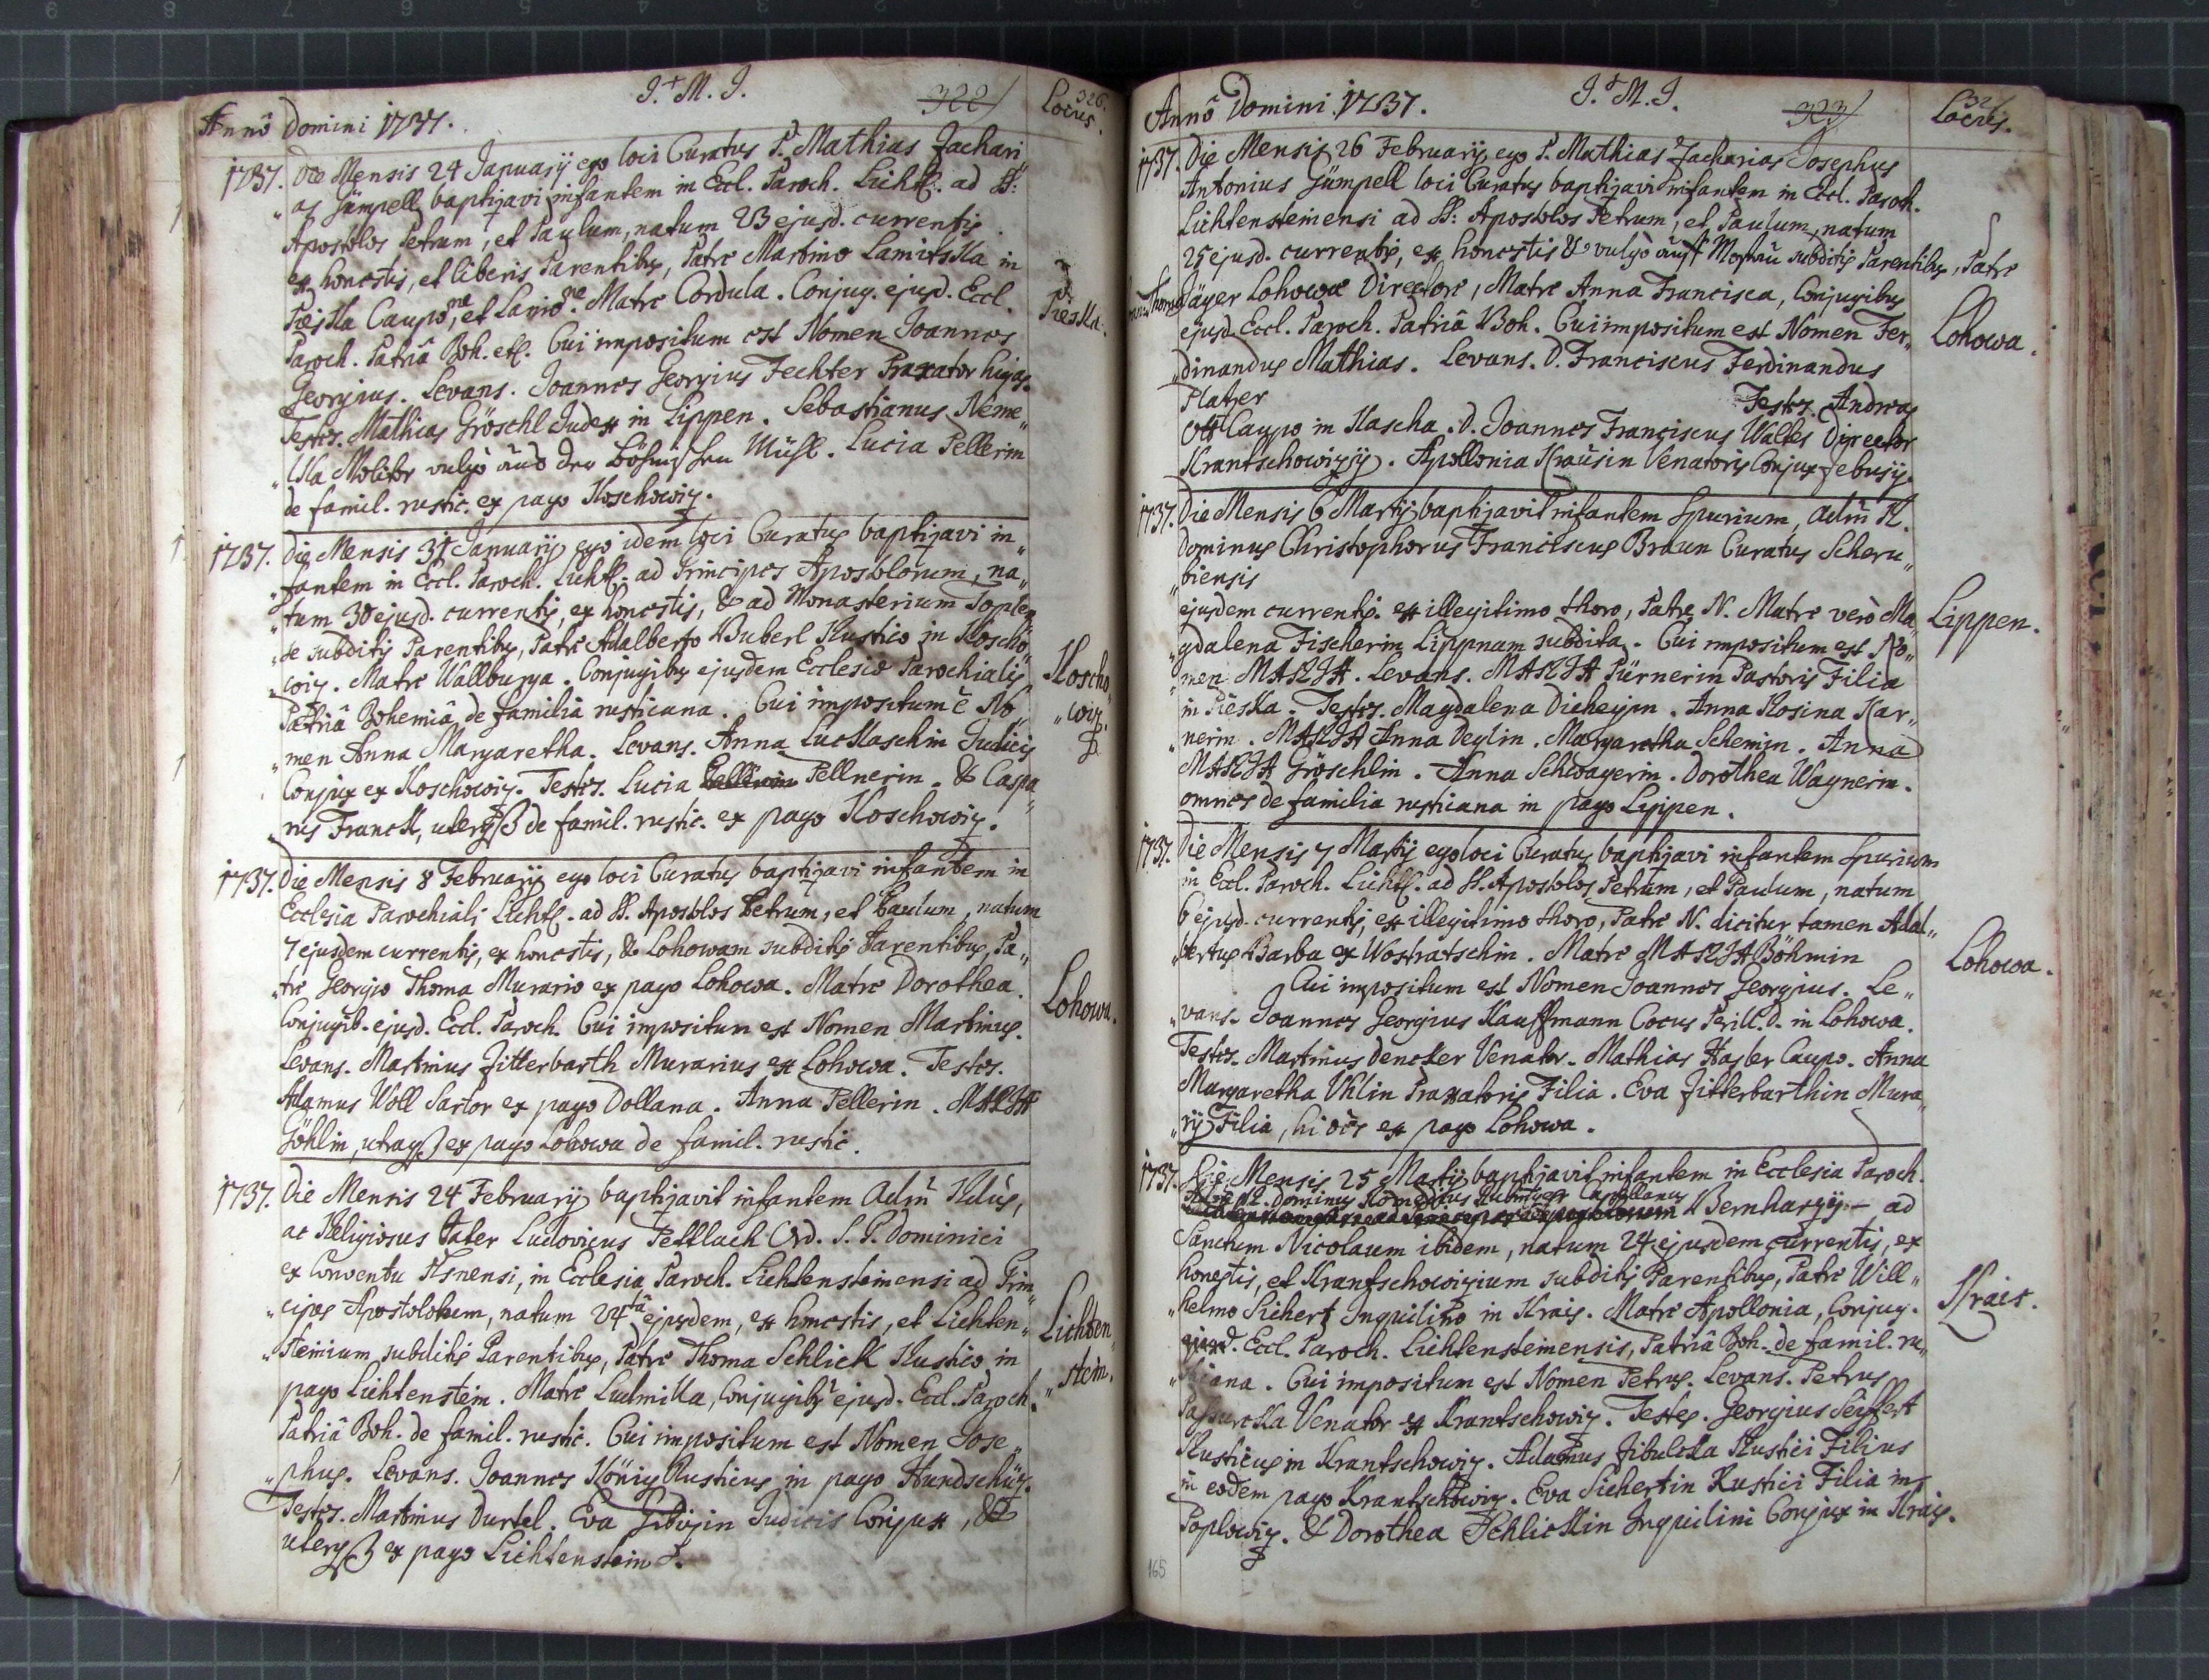 J. M. J.
322
326.
Annô Domini 1737.
Locus.
1737. Die Mensis 24 Januarij ego loci Curatus P. Mathias Zachari„
„as Gümpell baptizavi infantem in Eccl. Paroch. Lichts. ad SS:
Apostolos Petrum, et Paulum, natum 23 ejusd. currentis
ex honestis, et liberis Parentibus, Patre Martino Lamitska in
Pieska Caupone, et Lanione. Matre Cordula. Conjug. ejusd. Eccl.
Pieska.
Paroch. Patriâ Boh. etc. Cui impositum est Nomen Joannes
Georgius. Levans. Joannes Georgius Fechter Praxator hujas.
Testes. Mathias Gröschl Judex in Lippen. Sebastianus Neme„
„cska Molitor vulgò aus der Böhmischen Mühl. Lucia Pellerin
de famil. rustic. ex pago Koschowiz.
1737. Die Mensis 31 Januarij ego idem loci Curatus baptizavi in„
„fantem in Eccl. Paroch. Lichts. ad Principes Apostolorum, na„
„tum 30 ejusd. currentis, ex honestis, & ad Monasterium Teplen„
„se subditis Parentibus, Patre Adalberto Buberl Rustico in Koscho„
„wiz. Matre Wallburga. Conjugibus ejusdem Ecclesiæ Parochialis
Koscho„
„wiz.
Patriâ Bohemiâ de familia rusticana. Cui impositum ē No„
„men Anna Margaretha. Levans. Anna Luckaschin Judicis
Conjux ex Koschowiz. Testes. Lucia Pellnerin. & Caspa„
„rus Franck, uterq3 de famil. rustic. ex pago Koschowiz.
1737. Die Mensis 8 Februarij ego loci Curatus baptizavi infantem in
Ecclesia Parochiali Lichts. ad SS. Apostolos Petrum, et Paulum, natum
7 ejusdem currentis, ex honestis, & Lohowam subditis Parentibus, Pa„
„tre Georgio Thoma Murario ex pago Lohowa. Matre Dorothea.
Lohowa.
Conjugib. ejusd. Eccl. Paroch. Cui impositum est Nomen Martinus.
Levans. Martinus Zitterbarth Murarius ex Lohowa. Testes.
Adamus Woll Sartor ex pago Dollana. Anna Pellerin. MARIA
Göhlin, utraq3 ex pago Lohowa de famil. rustic.
1737. Die Mensis 24 Februarij baptizavit infantem Adm̃ Rd̃us,
ac Religiosus Pater Ludovicus Pettlach Ord. S. P. Dominici
ex Conventu Plsnensi, in Ecclesia Paroch. Lichtensteinensi ad Prin„
„cipes Apostolorum, natum 24tâ ejusdem, ex honestis, et Lichten„
„steinium subditis Parentibus, Patre Thoma Schlick Rustico in
Lichten„
„stein.
pago Lichtenstein. Matre Ludmilla, Conjugibq ejusd. Eccl. Paroch.
Patriâ Boh. de famil. rustic. Cui impositum est Nomen Jose„
„phus. Levans. Joannes König Rusticus in pago Hundschüz.
Testes. Martinus Durtel. Eva Judicis Conjux, &
uterq3 ex pago Lichtenstein.
J. M. J.
323
327
Annô Domini. 1737.
Locus.
1737. Die Mensis 26 Februarij, ego P. Mathias Zacharias Josephus
Antonius Gümpell loci Curatus baptizavi infantem in Eccl. Paroch.
Lichtensteinensi ad SS: Apostolos Petrum, et Paulum, natum
25 ejusd. currentis, ex honestis & vulgò subditis Parentibus, Patre
Jäger Lohowæ Directore, Matre Anna Francisca, Conjugibus
Lohowa.
ejusd. Eccl. Paroch. Patriâ Boh. Cui impositum est Nomen Fer„
„dinandus Mathias. Levans. D. Franciscus Ferdinandus
Platzer
Testes. Andreas
Ott Caupo in Kascha. D. Joannes Franciscus Waltes Director
Krantschowizij. Apollonia Krausin Venatoris Conjux Zebusij.
1737. Die Mensis 6 Martij baptizavit infantem Spurium, Adm̃ R.
Dominus Christophorus Franciscus Braun Curatus Scheru„
„biensis
ejusdem currentis. ex illegitimo thoro, Patre N. Matre verò Ma„
Lippen.
„gdalena Fischerin Lippnam subdita. Cui impositum est No„
„men MARIA. Levans. MARIA Pürnerin Pastoris Filia
in Pieska. Testes. Magdalena Dichezin. Anna Rosina Kar„
„nerin. MARIA Anna Deglin. Margaretha Schemin. Anna
MARIA Gröschlin. Anna Schwagerin. Dorothea Wagnerin.
omnes de familia rusticana in pago Lippen.
1737. Die Mensis 7 Martij ego loci Curatus baptizavi infantem Spurium
in Eccl. Paroch. Lichts. ad SS. Apostolos Petrum, et Paulum, natum
6 ejusd. currentis, ex illegitimo thoro, Patre N. dicitur tamen Adal„
„bertus Barba ex Wostratschin. Matre MARIA Böhmin
Lohowa.
Cui impositum est Nomen Joannes Georgius. Le„
„vans. Joannes Georgius Kauffmann Cocus Perill. D. in Lohowa.
Testes. Martinus Dencker Venator. Mathias Hasler Caupo. Anna
Margaretha Uhlin Praxatoris Filia. Eva Zitterbarthin Mura„
„rij Filia, hi oēs ex pago Lohowa.
1737. Die Mensis 25 Martij baptizavit infantem in Ecclesia Paroch.
Dominus Capellanus Bernharzij ad
Sanctum Nicolaum ibidem, natum 24 ejusdem currentis, ex
honestis, et Krantschowizium subditis Parentibus, Patre Will„
„helmo Sichert Inquilino in Krais. Matre Apollonia, Conjug.
Krais.
ejusd. Eccl. Paroch. Lichtensteinensis, Patriâ Boh. de famil. ru„
„sticana. Cui impositum est Nomen Petrus. Levans. Petrus
Passurcka Venator ex Krantschowiz. Testes. Georgius Seiffert
Rusticus in Krantschowiz. Adamus Zibulcka Rustici Filius
in eodem pago Krantschowiz. Eva Sichertin Rustici Filia in
Poplowiz. & Dorothea Schlickin Inquilini Conjux in Krais.
165